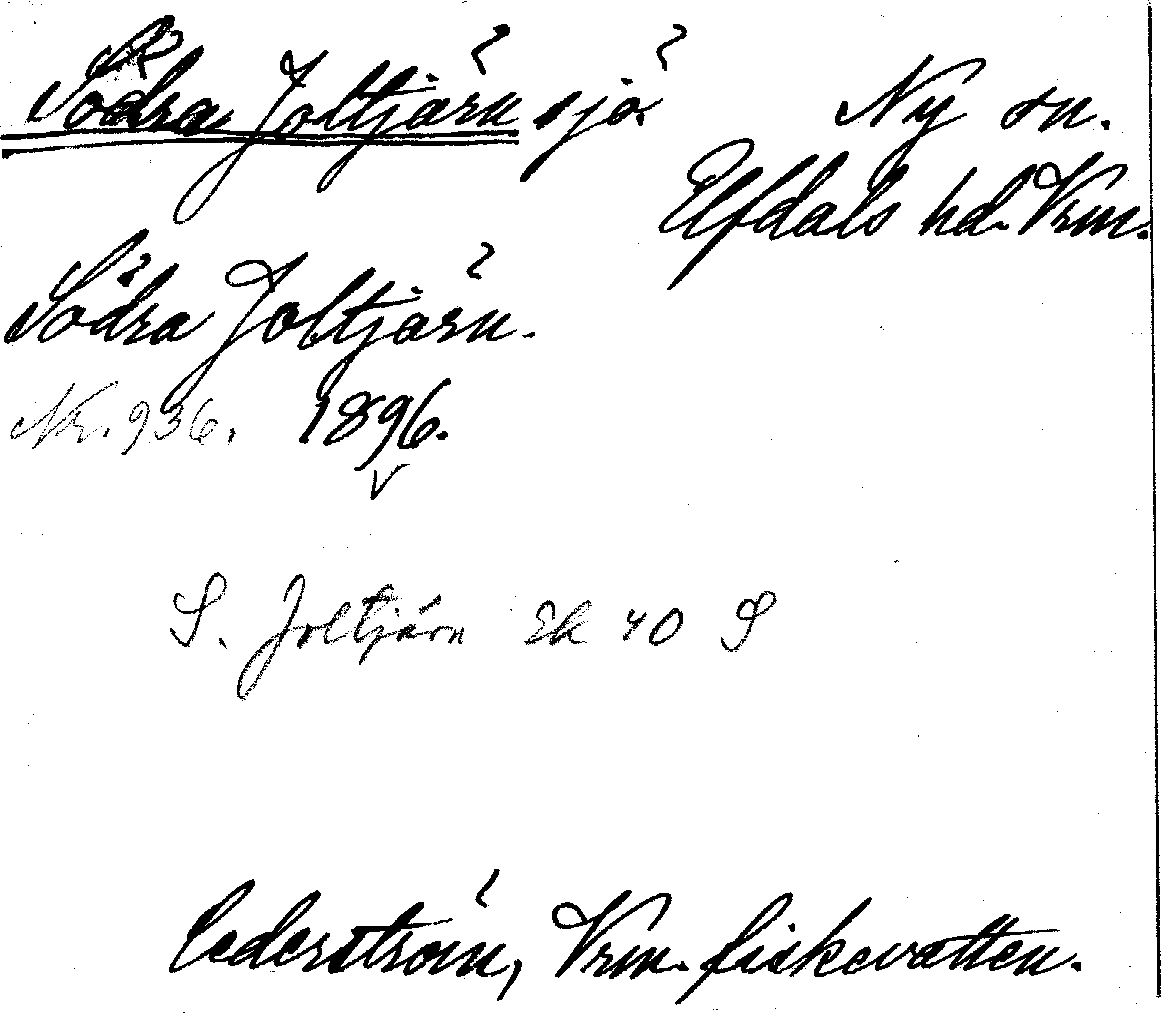 Södra Joltjärn sjö Ny sn.
Elfdals hd. Vrm.
Södra Joltjärn.
Nr. 936. 1896.
S. Joltjärn Ek 40 S
Cederström, Vrm. fiskevatten.